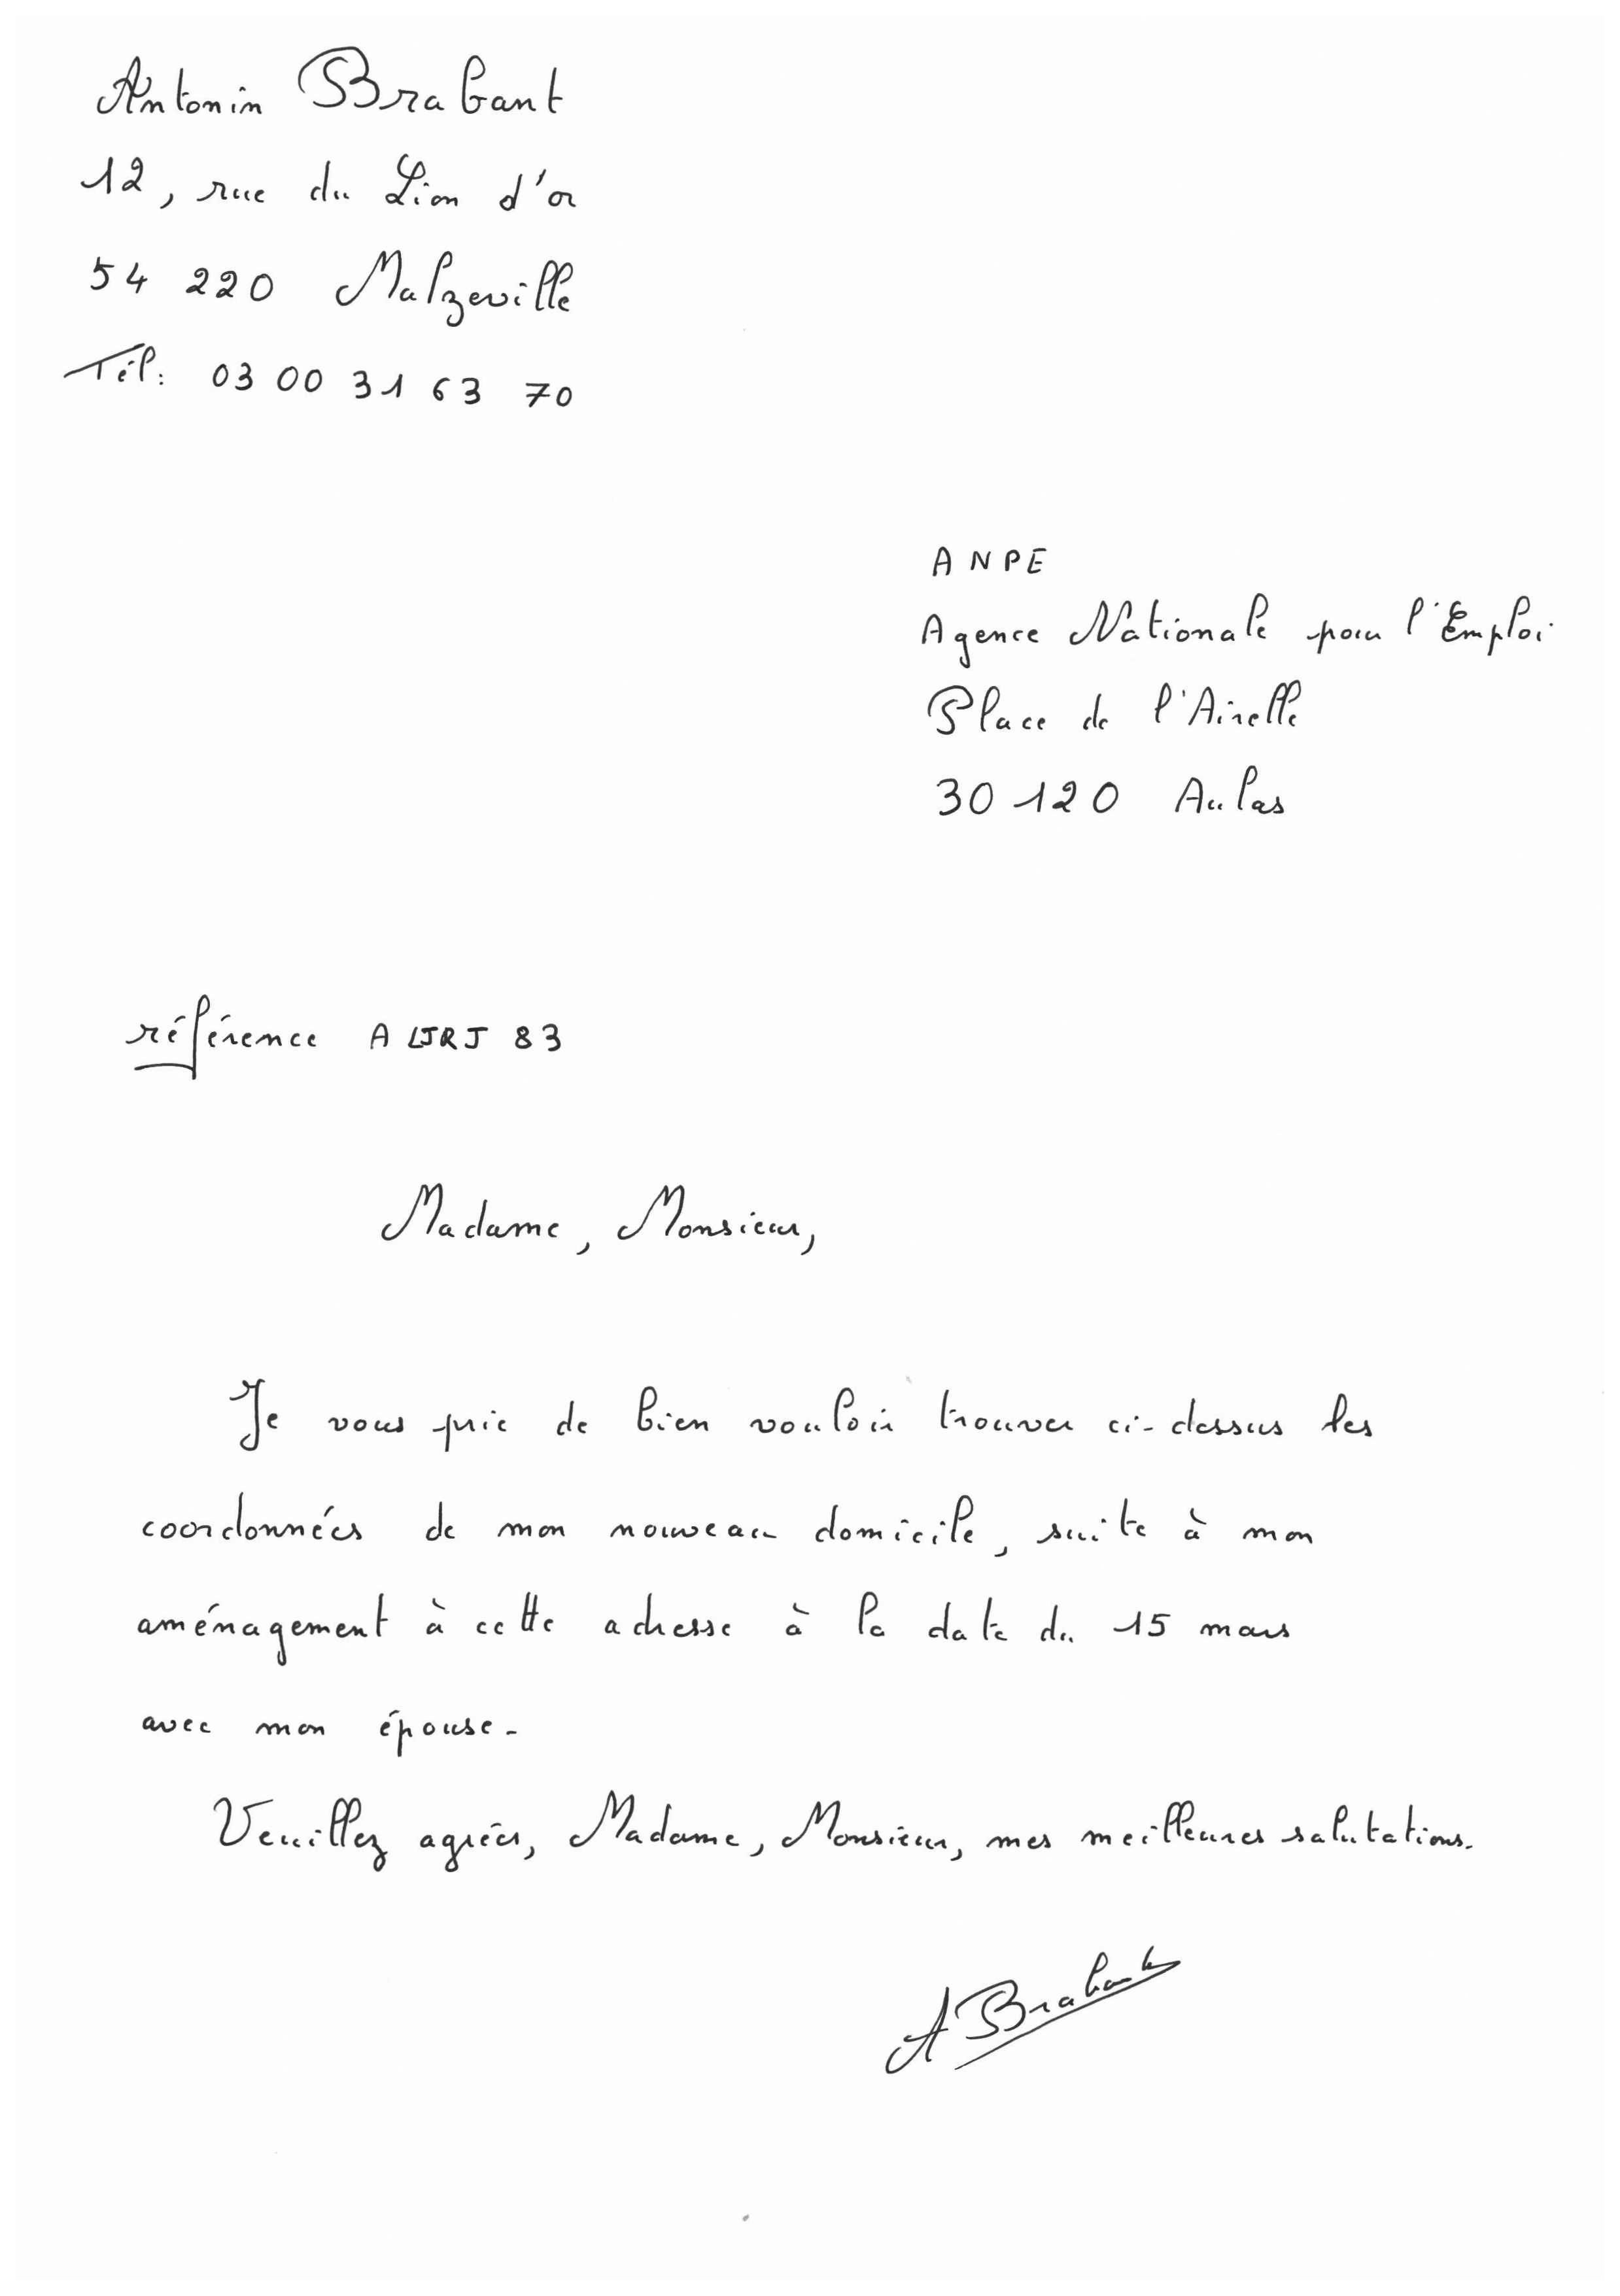 Antonin Brabant
12, rue du Lion d'or
54 220 Malzeville
Tél: 03 00 31 63 70
ANPE
Agence Nationale pour l'Emploi
Place de l'Airelle
30 120 Aulas
référence A LJRJ 83
Madame, Monsieur,
Je vous prie de bien vouloir trouver ci-dessus les
coordonnées de mon nouveau domicile, suite à mon
aménagement à cette adresse à la date du 15 mars
avec mon épouse.
Veuillez agréer, Madame, Monsieur, mes meilleures salutations.
A Brabant